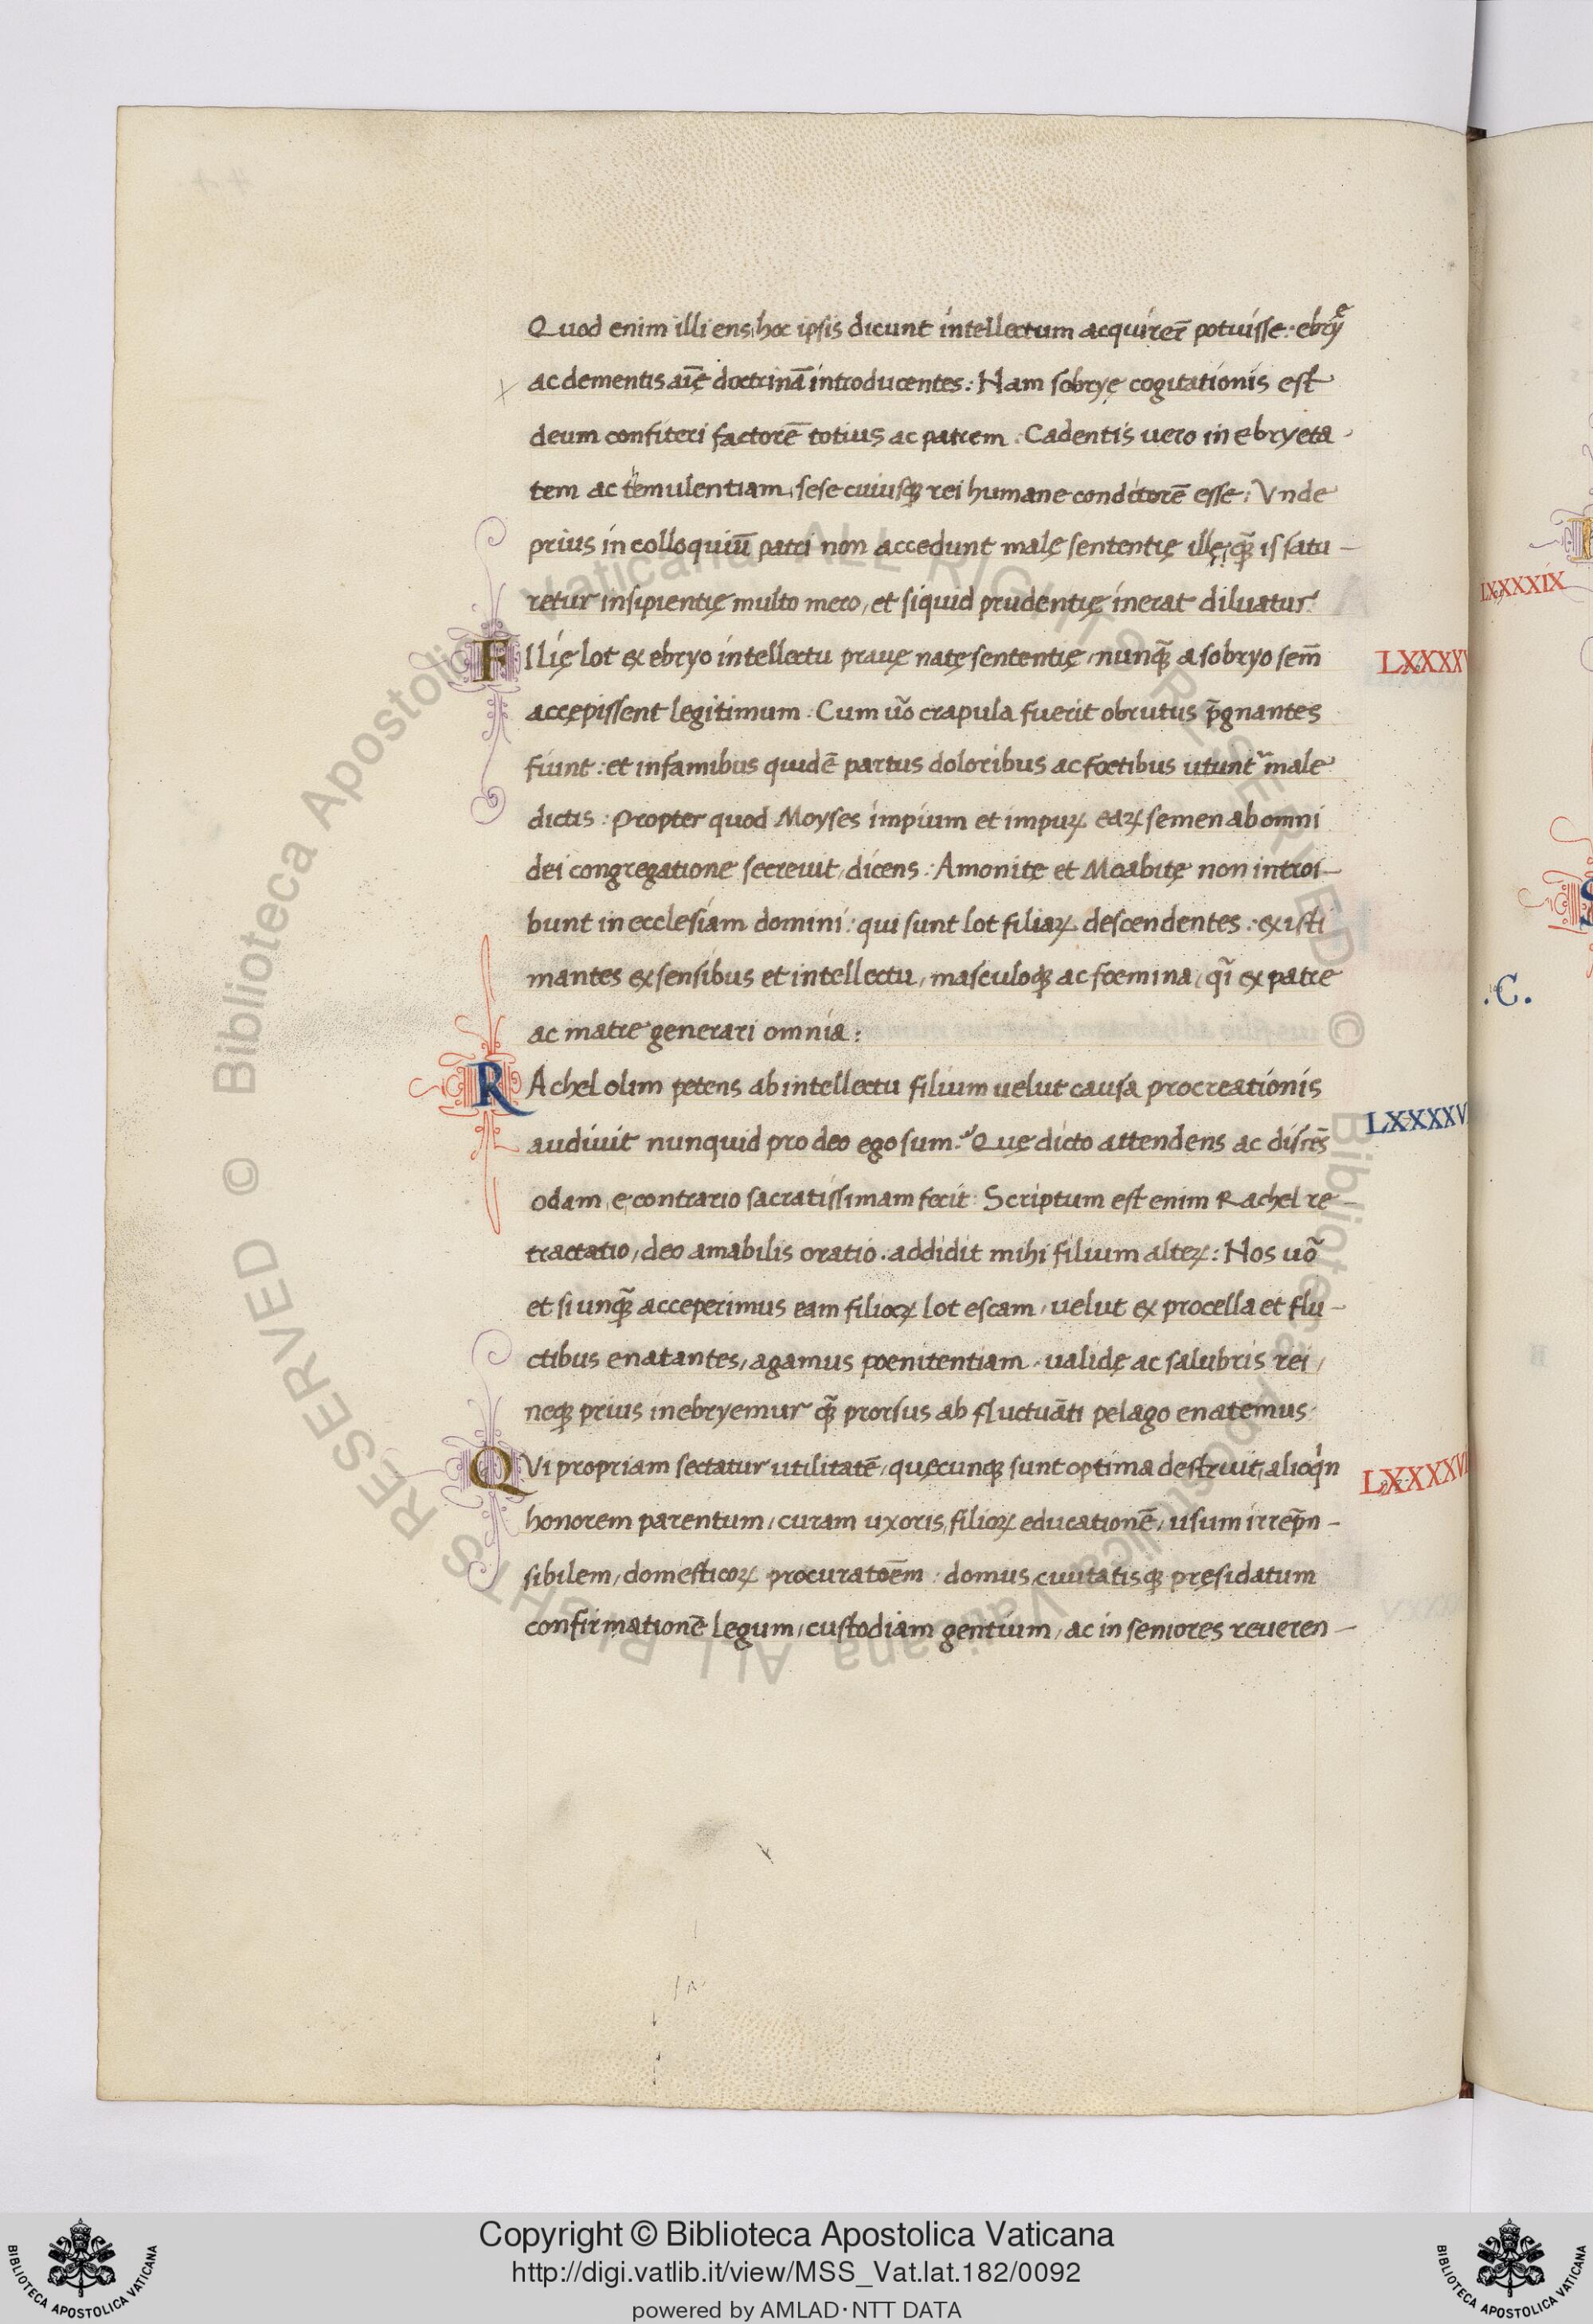 Quod enim illi ens, hoc ipsis dicunt intellectum acquirer̄ potuisse: ebryę
ac dementis aīę doctrinā introducentes: Nam sobryę cogitationis est
deum confiteri factorē totius ac patrem. Cadentis uero in ebryeta
tem ac temulentiam, sese cuiusqꝫ rei humane conditorē esse: Vnde
prius in colloquiū patri non accedunt malę sententię illę, qꝫ̄ is satu-
retur insipientię multo mero, et siquid prudentię inerat diluatur.
FIlię lot ex ebryo intellectu prauę natę sententię, nunqꝫ̄ a sobryo sem̄
LXXXXV
accępissent legitimum. Cum ūo crapula fuerit obrutus p̄gnantes
fiunt: et infamibus quidē partus doloribus ac foetibus utunt᷑ male
dictis: Propter quod Moyses impium et impuꝝ eaꝝ semen ab omni
dei congregatione secreuit, dicens: Amonitę et Moabitę non introi-
bunt in ecclesiam domini: qui sunt lot filiaꝝ descendentes: existi
mantes ex sensibus et intellectu, masculoqꝫ ac foemina, q̄i ex patre
ac matre generari omnia:
RAchel olim petens ab intellectu filium uelut causa procreationis
audiuit nunquid pro deo ego sum? Quę dicto attendens ac discēs
LXXXXV
odam, e contrario sacratissimam fecit: Scriptum est enim Rachel re-
tractatio, deo amabilis oratio. addidit mihi filium alteꝝ: Nos uō
et si unqꝫ̄ acceperimus eam filioꝝ lot escam, uelut ex procella et flu-
ctibus enatantes, agamus poenitentiam, ualidę ac salubris rei,
neqꝫ prius inebryemur qꝫ̄ prorsus ab fluctuāti pelago enatemus.
QVi propriam sectatur utilitatē, quęcunqꝫ sunt optima destruit, alioqͥn
LXXXXVI
honorem parentum, curam uxoris, filioꝝ educationē, usum irrep̄n-
sibilem, domesticoꝝ procuratōem: domus, ciuitatisqꝫ pręsidatum
confirmationē legum, custodiam gentium, ac in seniores reueren-
LXXXXIX
.C.
Copyright © Biblioteca Apostolica Vaticana
http://digi.vatlib.it/view/MSS_Vat.lat.182/0092
powered by AMLAD·NTT DATA
BIBLIOTECA APOSTOLICA VATICANA
BIBLIOTECA APOSTOLICA VATICANA
© Biblioteca Apostolica Vaticana ALL RIGHTS RESERVED
© Biblioteca Apostolica Vaticana ALL RIGHTS RESERVED